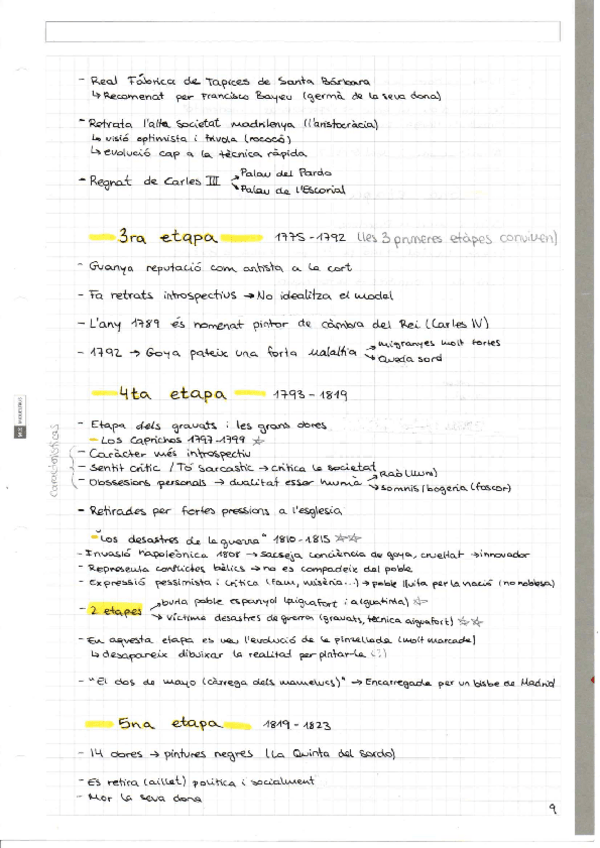 - Real Fábrica de Tapices de Santa Bárbara
↳ Recomenat per Francisco Bayeu (germà de la seva dona)
- Retrata l'alta societat madrilenya (l'aristocràcia)
↳ visió optimista i frívola (rococó)
↳ evolució cap a la tècnica ràpida
- Regnat de Carles III → Palau del Pardo
→ Palau de l'Escorial
3ra etapa 1775-1792 (les 3 primeres etapes conviuen)
- Guanya reputació com artista a la cort
- Fa retrats introspectius → No idealitza el model
- L'any 1789 és nomenat pintor de càmbra del Rei (Carles IV)
- 1792 → Goya pateix una forta malaltia → migranyes molt fortes
→ Queda sord
4ta etapa 1793-1819
- Etapa dels gravats i les grans obres
- Los Caprichos 1797-1799 ☆
Características
- Caràcter més introspectiu
- Sentit crític / To sarcastic → critica la societat
- Obssesions personals → dualitat esser humà → Raó (llum)
→ somnis/bogeria (foscor)
- Retirades per fortes pressions a l'esglesia
- "Los desastres de la guerra" 1810-1815 ☆☆
- Invasió napoleònica 1808 → sacseja conciència de goya, crueltat → innovador
- Representa conflictes bèlics → no es compadeix del poble
- Expressió pessimista i crítica (fam, misèria...) → poble lluita per la nació (no noblesa)
- 2 etapes → burla poble espanyol (aiguafort i aiguatinta) ☆
→ víctime desastres de guerra (gravats, tècnica aiguafort) ☆☆
- En aquesta etapa es veu l'evolució de la pinzellada (molt marcada)
↳ desapareix dibuixar la realitat per pintar-la (?)
- "El dos de mayo (càrrega dels mamelucs)" → Encarregada per un bisbe de Madrid
5na etapa 1819-1823
- 14 obres → pintures negres (La Quinta del Sordo)
- Es retira (aïllat) política i socialment
- Mor la seva dona
9